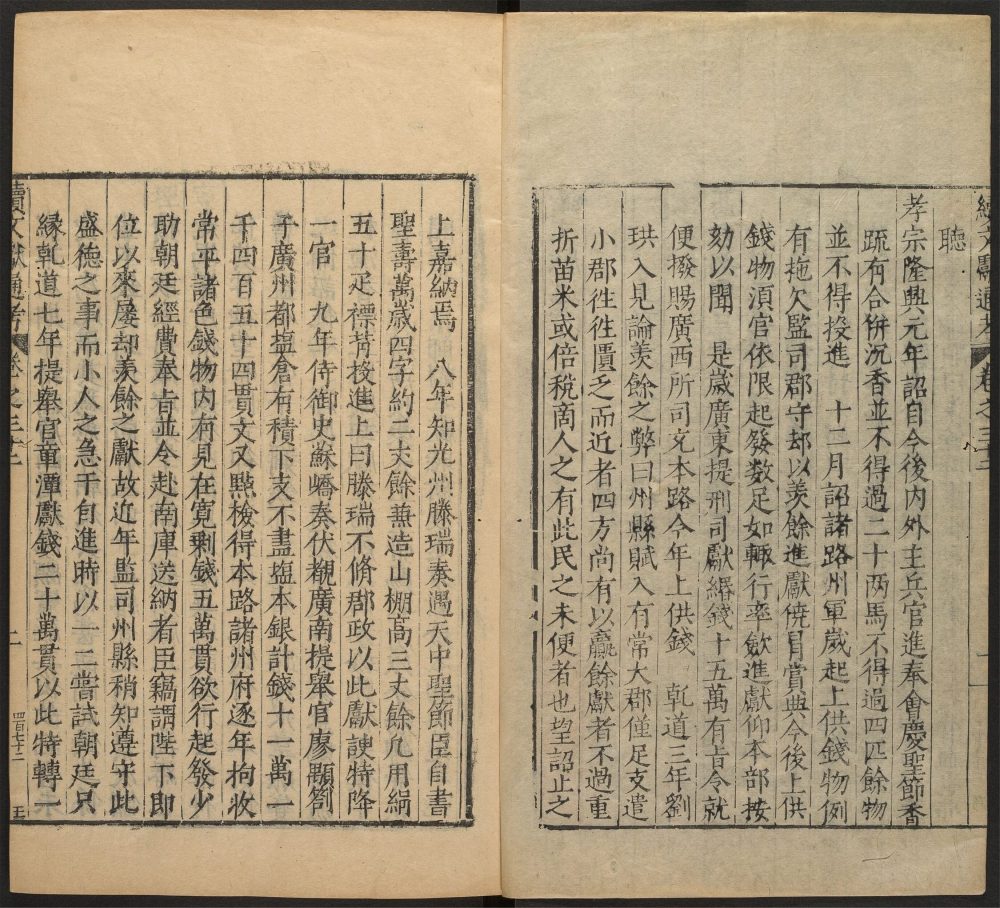 續文獻通考 卷之三十二
聴
孝宗隆興元年詔自今後内外主兵官進奉會慶聖節香
䟽有合併沉香並不得過二十两馬不得過四匹餘物
並不得投進 十二月詔諸路州軍歲起上供錢物例
有拖欠監司郡守却以羡餘進獻僥冒賞典今後上供
錢物須官依限起發数足如輒行率歛進獻仰本部按
劾以聞 是歲廣東提刑司獻緡錢十五萬有旨令就
便撥賜廣西所司充本路今年上供錢 乹道三年劉
珙入見論羡餘之弊曰州縣賦入有常大郡僅足支遣
小郡徃徃匱乏而近者四方尚有以羸餘獻者不過重
折苗米或倍税商人之有此民之未便者也望詔止之
上嘉納焉 八年知光州滕瑞奏遇天中聖節臣自書
聖壽萬歲四字約二丈餘兼造山棚高三丈餘凢用絹
五十疋褾背投進上曰滕瑞不脩郡政以此獻諛特降
一官 九年侍御史蘇嶠奏伏覩廣南提舉官廖顒劄
子廣州都塩倉有積下支不盡塩本銀計錢十一萬一
千四百五十四貫文又㸃檢得本路諸州府逐年拘收
常平諸色錢物内有見在寛剩錢五萬貫欲行起發少
助朝廷經費奉旨並令赴南庫送納者臣竊謂陛下即
位以來屢却羡餘之獻故近年監司州縣稍知遵守此
盛徳之事而小人之急于自進時以一二嘗試朝廷只
縁乹道七年提舉官童潭獻錢二十萬貫以此特轉一
續文獻通考 卷之三十二 二